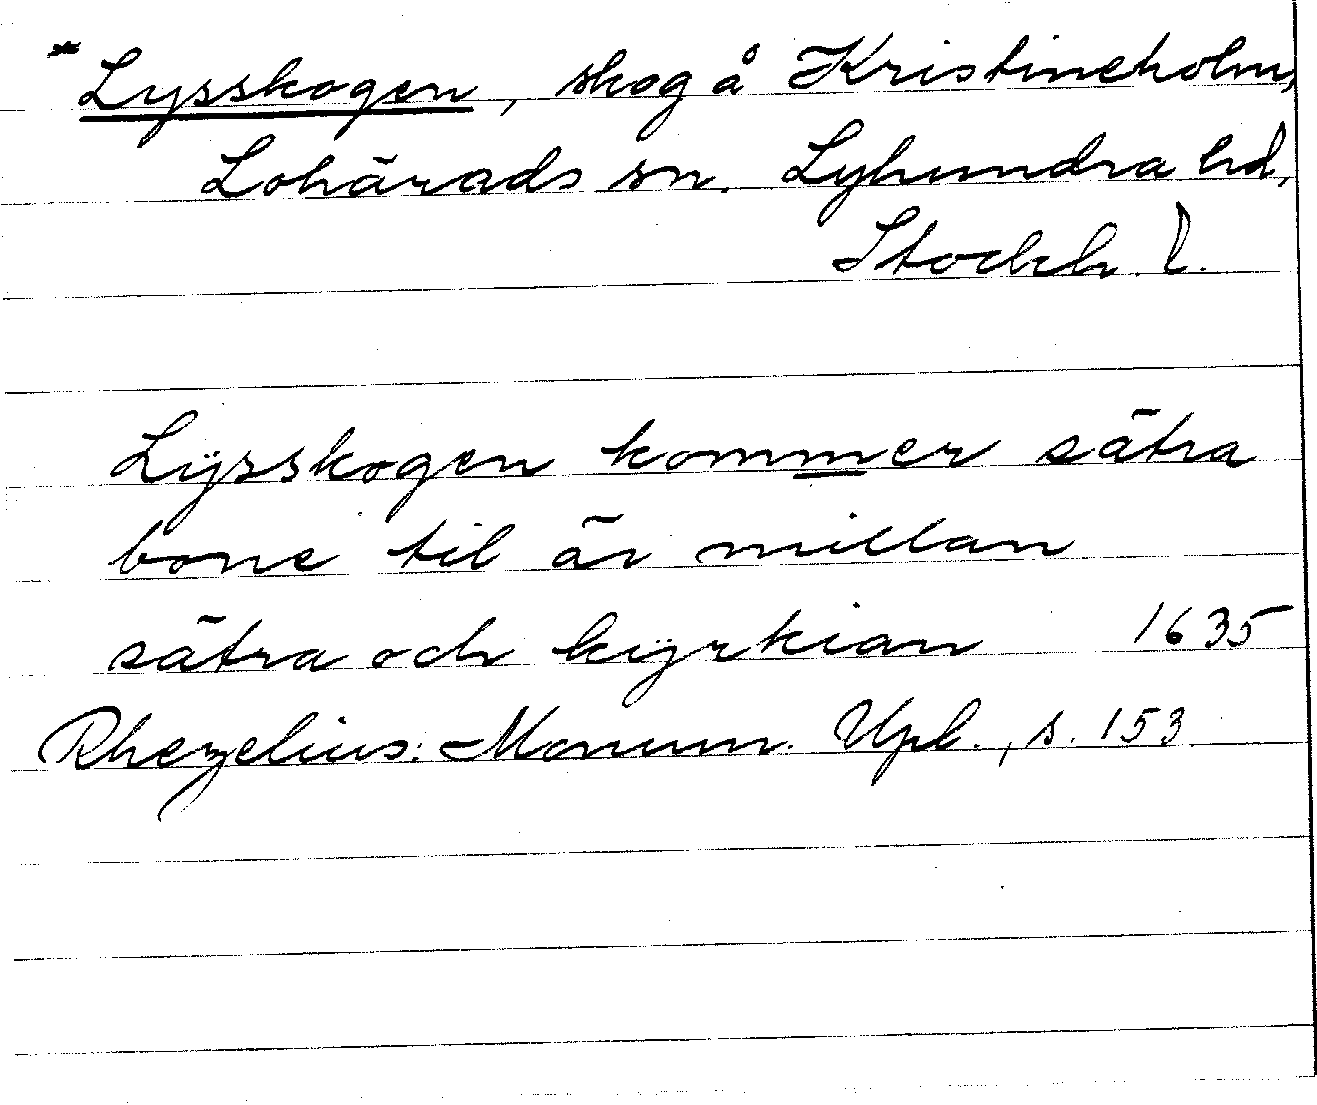 * Lysskogen, skog å Kristineholm,
Lohärads sn. Lyhundra hd,
Stockh. l.
Lÿsskogen kommer sätra
bone til är millan
sätra och kÿrkian 1635
Rhezelius: Monum. Upl., s. 153.